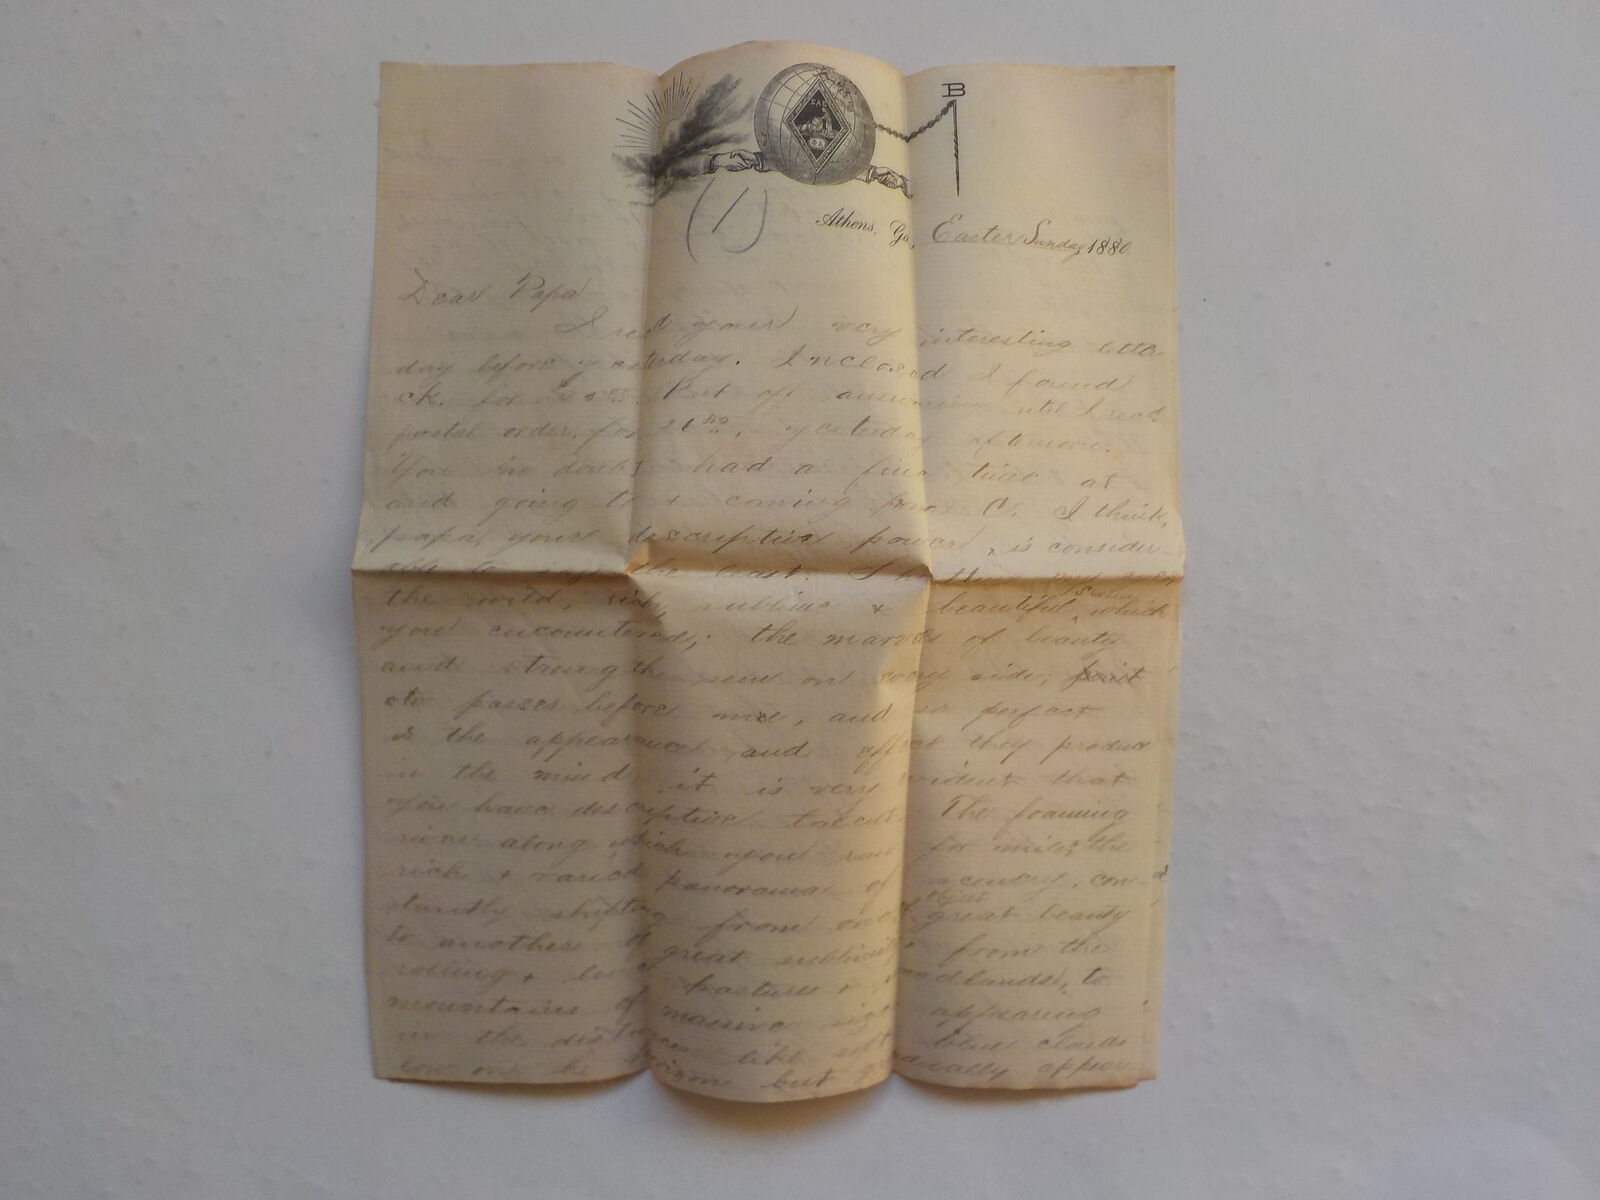 B
ΣΑΕ
GA
(1)
Athens, Ga., Easter Sunday, 1880
Dear Papa
I recd your very interesting letter
day before yesterday. Inclosed I found
ck. for Put off answering until I recd
postal order, for 26 yesterday afternoon.
You no doubt had a fine time at
and going to & coming from C. I think,
papa, your descriptive power, is consider-
able to say the least.
the wild, rich, sublime & beautiful, which
you encountered; the marvels of beauty
and strength seen on every side;
passes before me, and so perfect
is the appearance and effect they produce
in the mind, it is very evident that
you have descriptive talent. The foaming
river along which you ran for miles, the
rich & varied panorama of scenery, con-
stantly shifting from one object of great beauty
to another of great sublimity; from the
rolling & level pastures & woodlands, to
mountains of massive size appearing
in the distance like soft blue clouds
low on the horizon but gradually appear